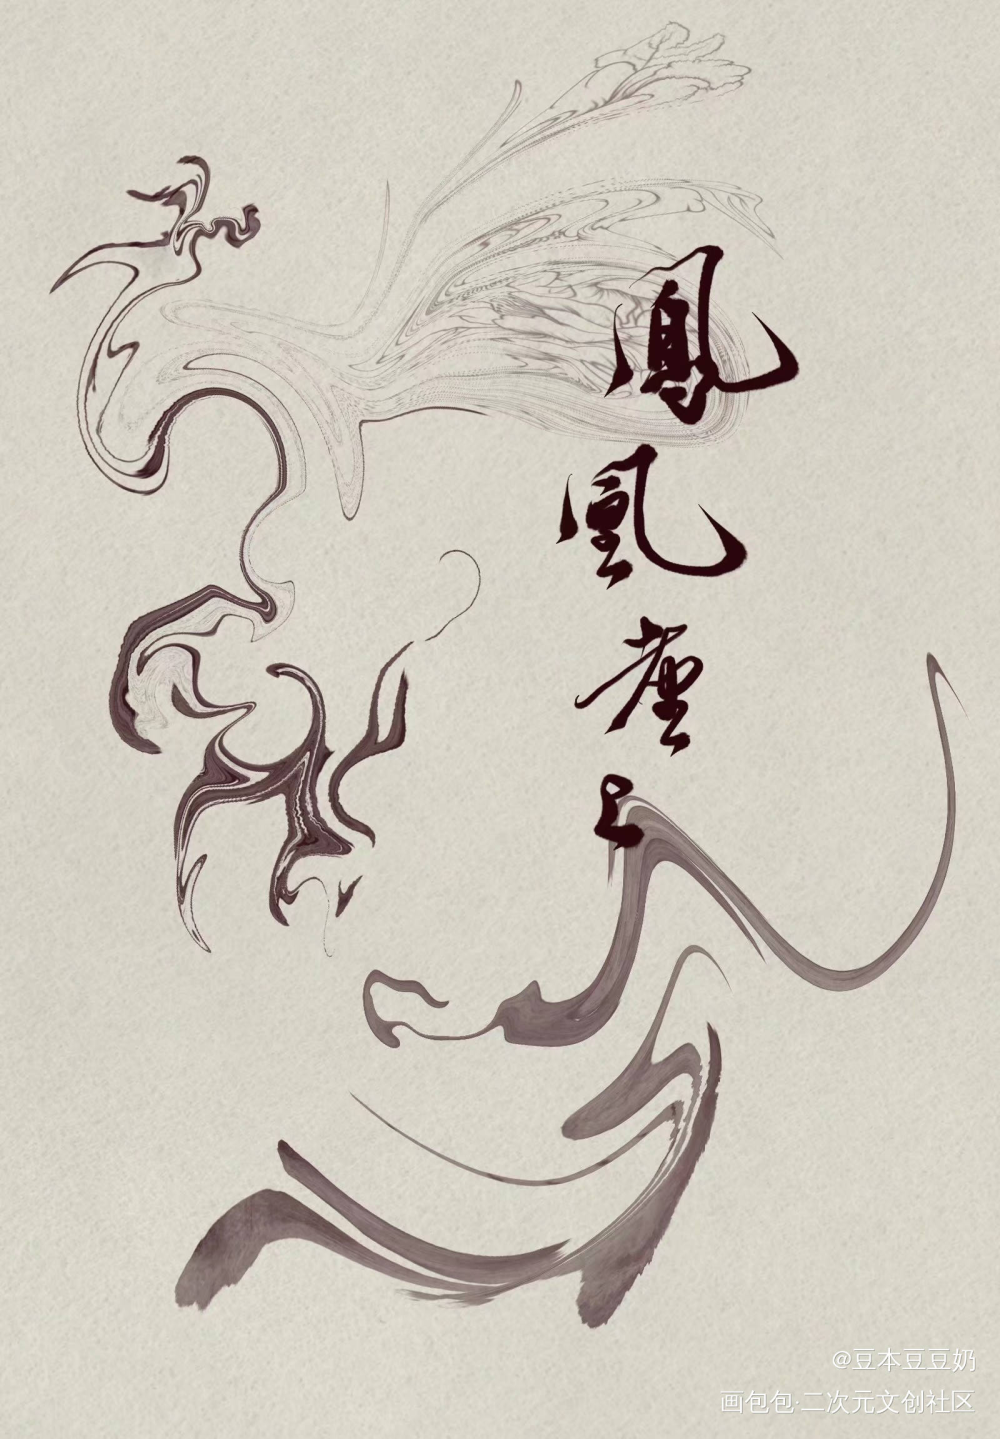 鳳
凰
臺
上
@豆本豆豆奶
画包包·二次元文创社区